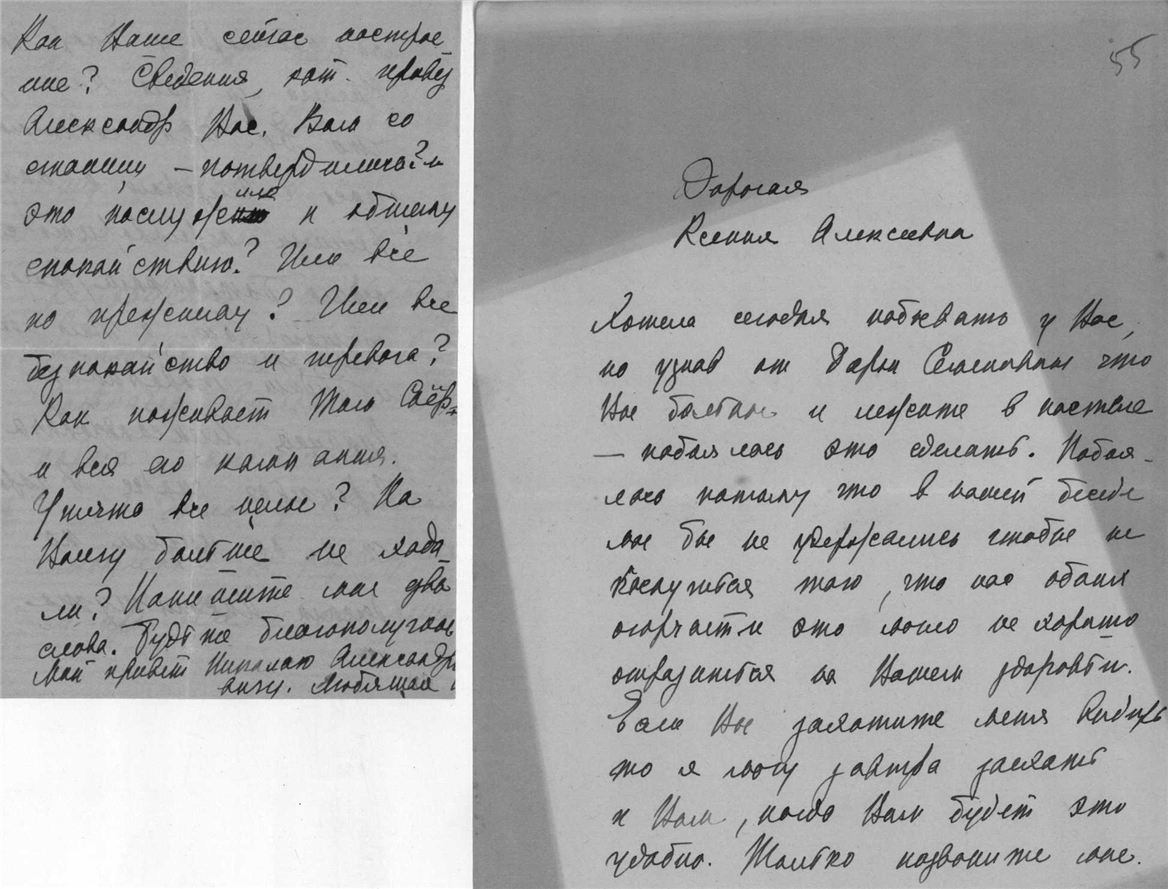 Как Ваше сейчас настрое
ние? Сведения, кот. привез
Александр Вас. Вам со
станции – потвердились? и
это послужило к общему
спокойствию? Или все
по прежнему? Или все
безпокойство и тревога?
Как поживает
и вся его компания.
Утята все целы? На
Волгу больше не ходи
ли? Напишите мне два
слова. Будьте благополучны
Мой привет Николаю Александро
вичу. Любящая
55
Дорогая
Ксения Алексеевна
Хотела сегодня побывать у Вас,
но узнав от Дарьи Степановны что
Вы больны и лежите в постеле
— побоялась это сделать. Побоя-
лась потому что в нашей беседе
мы бы не удержались чтобы не
коснуться того, что нас обоих
огорчает и это могло не хорошо
отразиться на Вашем здоровьи.
Если Вы захотите меня видеть
то я могу завтра заехать
к Вам, когда Вам будет это
удобно. Только позвоните мне.